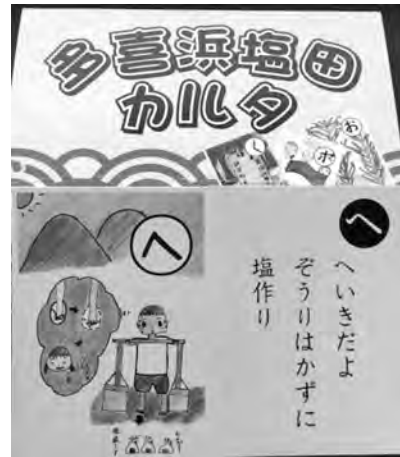 多喜浜塩田
カルタ
く
ボ
お
へ
へ
へいきだよ
ぞうりはかずに
塩作り